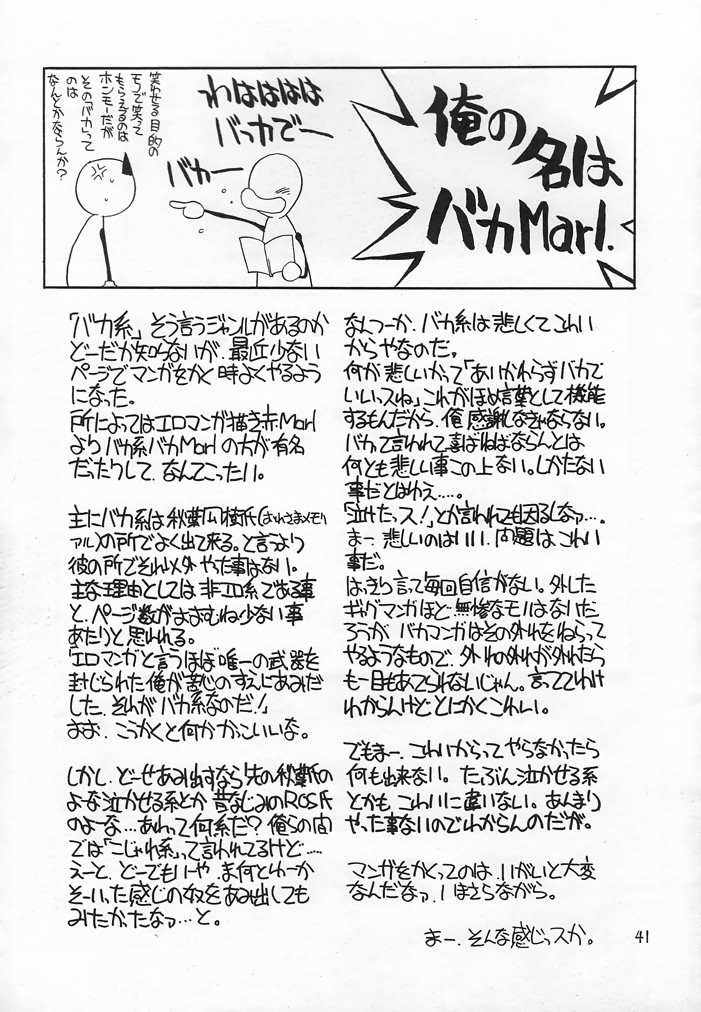 俺の
名は
バカMarl.
わはははは
バッカでー
バカー
笑わせる目的の
モノで笑って
もらえるのは
ホンモーだが
その「バカ」って
のは
なんとかならんか?
「バカ系」そう言うジャンルがあるのか
どーだか知らないが、最近少ない
ページでマンガをかく時よくやるよう
になった。
所によってはエロマンガ描き赤Marl
よりバカ系バカMarlの方が有名
だったりして、なんてこったい。
主にバカ系は秋葉凪樹氏(おれさまメモリ
アル)の所でよく出て来る。と言うより
彼の所でそれ以外やった事はない。
主な理由としては非エロ系である事
と、ページ数がおおむね少ない事
あたりと思われる。
「エロマンガと言うほぼ唯一の武器を
封じられた俺が苦心のすえにあみだ
した、それがバカ系なのだ!」
おお、こうかくと何かかっこいいな。
しかし、どーせあみ出すなら先の秋葉氏の
よーな泣かせる系とか昔なじみのROS氏
のよーな…あれって何系だ?俺らの間
では「こじゃれ系」って言われてるけど……
えーと、どーでもいーや、ま何とゆーか
そーいった感じの奴をあみ出しても
みたかったなァ…と。
なんつーか、バカ系は悲しくてこわい
からやなのだ。
何が悲しいかって「あいかわらずバカで
いいっスね」これがほめ言葉として機能
するもんだから、俺感謝しなきゃならない。
バカって言われて喜ばねばならんとは
何とも悲しい事この上ない。しかたない
事だとはゆえ……。
「泣けたっス!」とか言われても困るしなァ…。
まー、悲しいのはいい、問題はこわい
事だ。
はっきり言って毎回自信がない。外した
ギャグマンガほど無惨なモノはないだ
ろうが、バカマンガはその外れをねらって
やるようなもので、外れの外れが外れたら
も一目もあてられないじゃん。言っててわけ
わからんけどとにかくこわい。
でもまー、こわいからってやらなかったら
何も出来ない。たぶん泣かせる系
とかも、こわいに違いない。あんまり
やった事ないのでわからんのだが。
マンガをかくってのは、いがいと大変
なんだなァ、いまさらながら。
まー、そんな感じっスか。
41